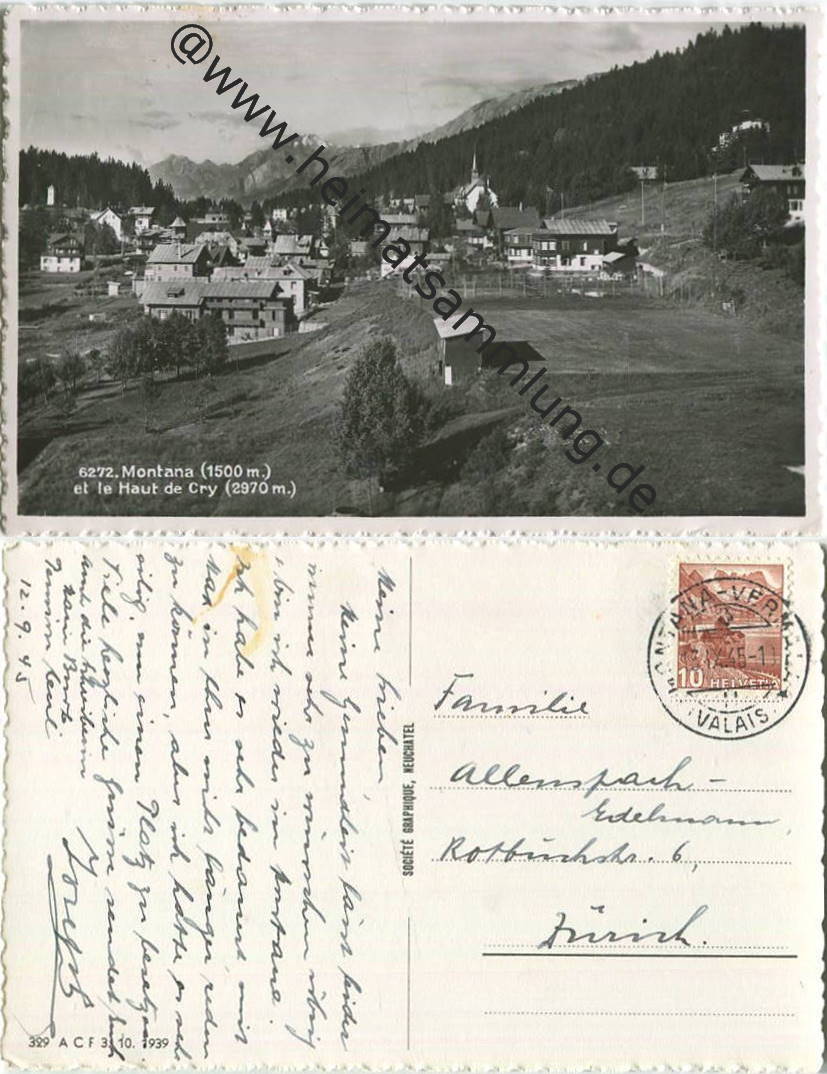 @www.heimatsammlung.de
6272. Montana (1500 m.)
et le Haut de Cry (2970 m.)
Meine Lieben,
Meine Gesundheit lässt leider
immer sehr zu wünschen übrig
bin ich wieder in Montana.
Ich habe es sehr bedauert mit
in Thun nicht länger reden
zu können, aber ich hatte es sehr
eilig um einen Platz zu besetzen.
Viele herzliche Grüsse sendet Euch
12.9.45
SOCIÉTÉ GRAPHIQUE, NEUCHATEL
329 A C F 3. 10. 1939
MONTANA-VERMALA
VALAIS
10 HELVETIA
Familie
Allenspach-
Edelmann,
Rotbuchstr. 6,
Zürich.